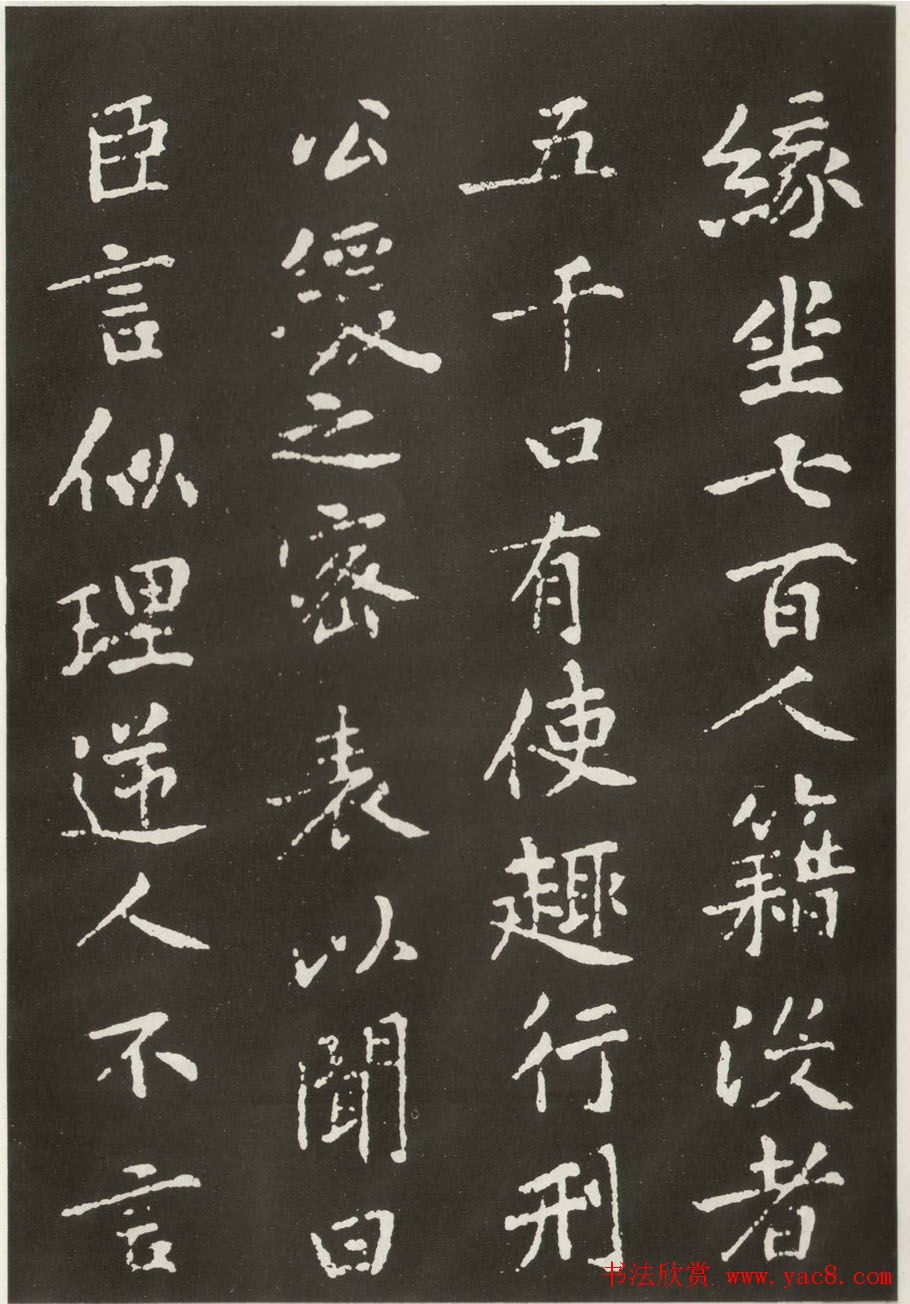 緣坐七百人籍没者
五千口有使趣行刑
公緩之密表以聞曰
臣言似理逆人不言
书法欣赏 www.yac8.com